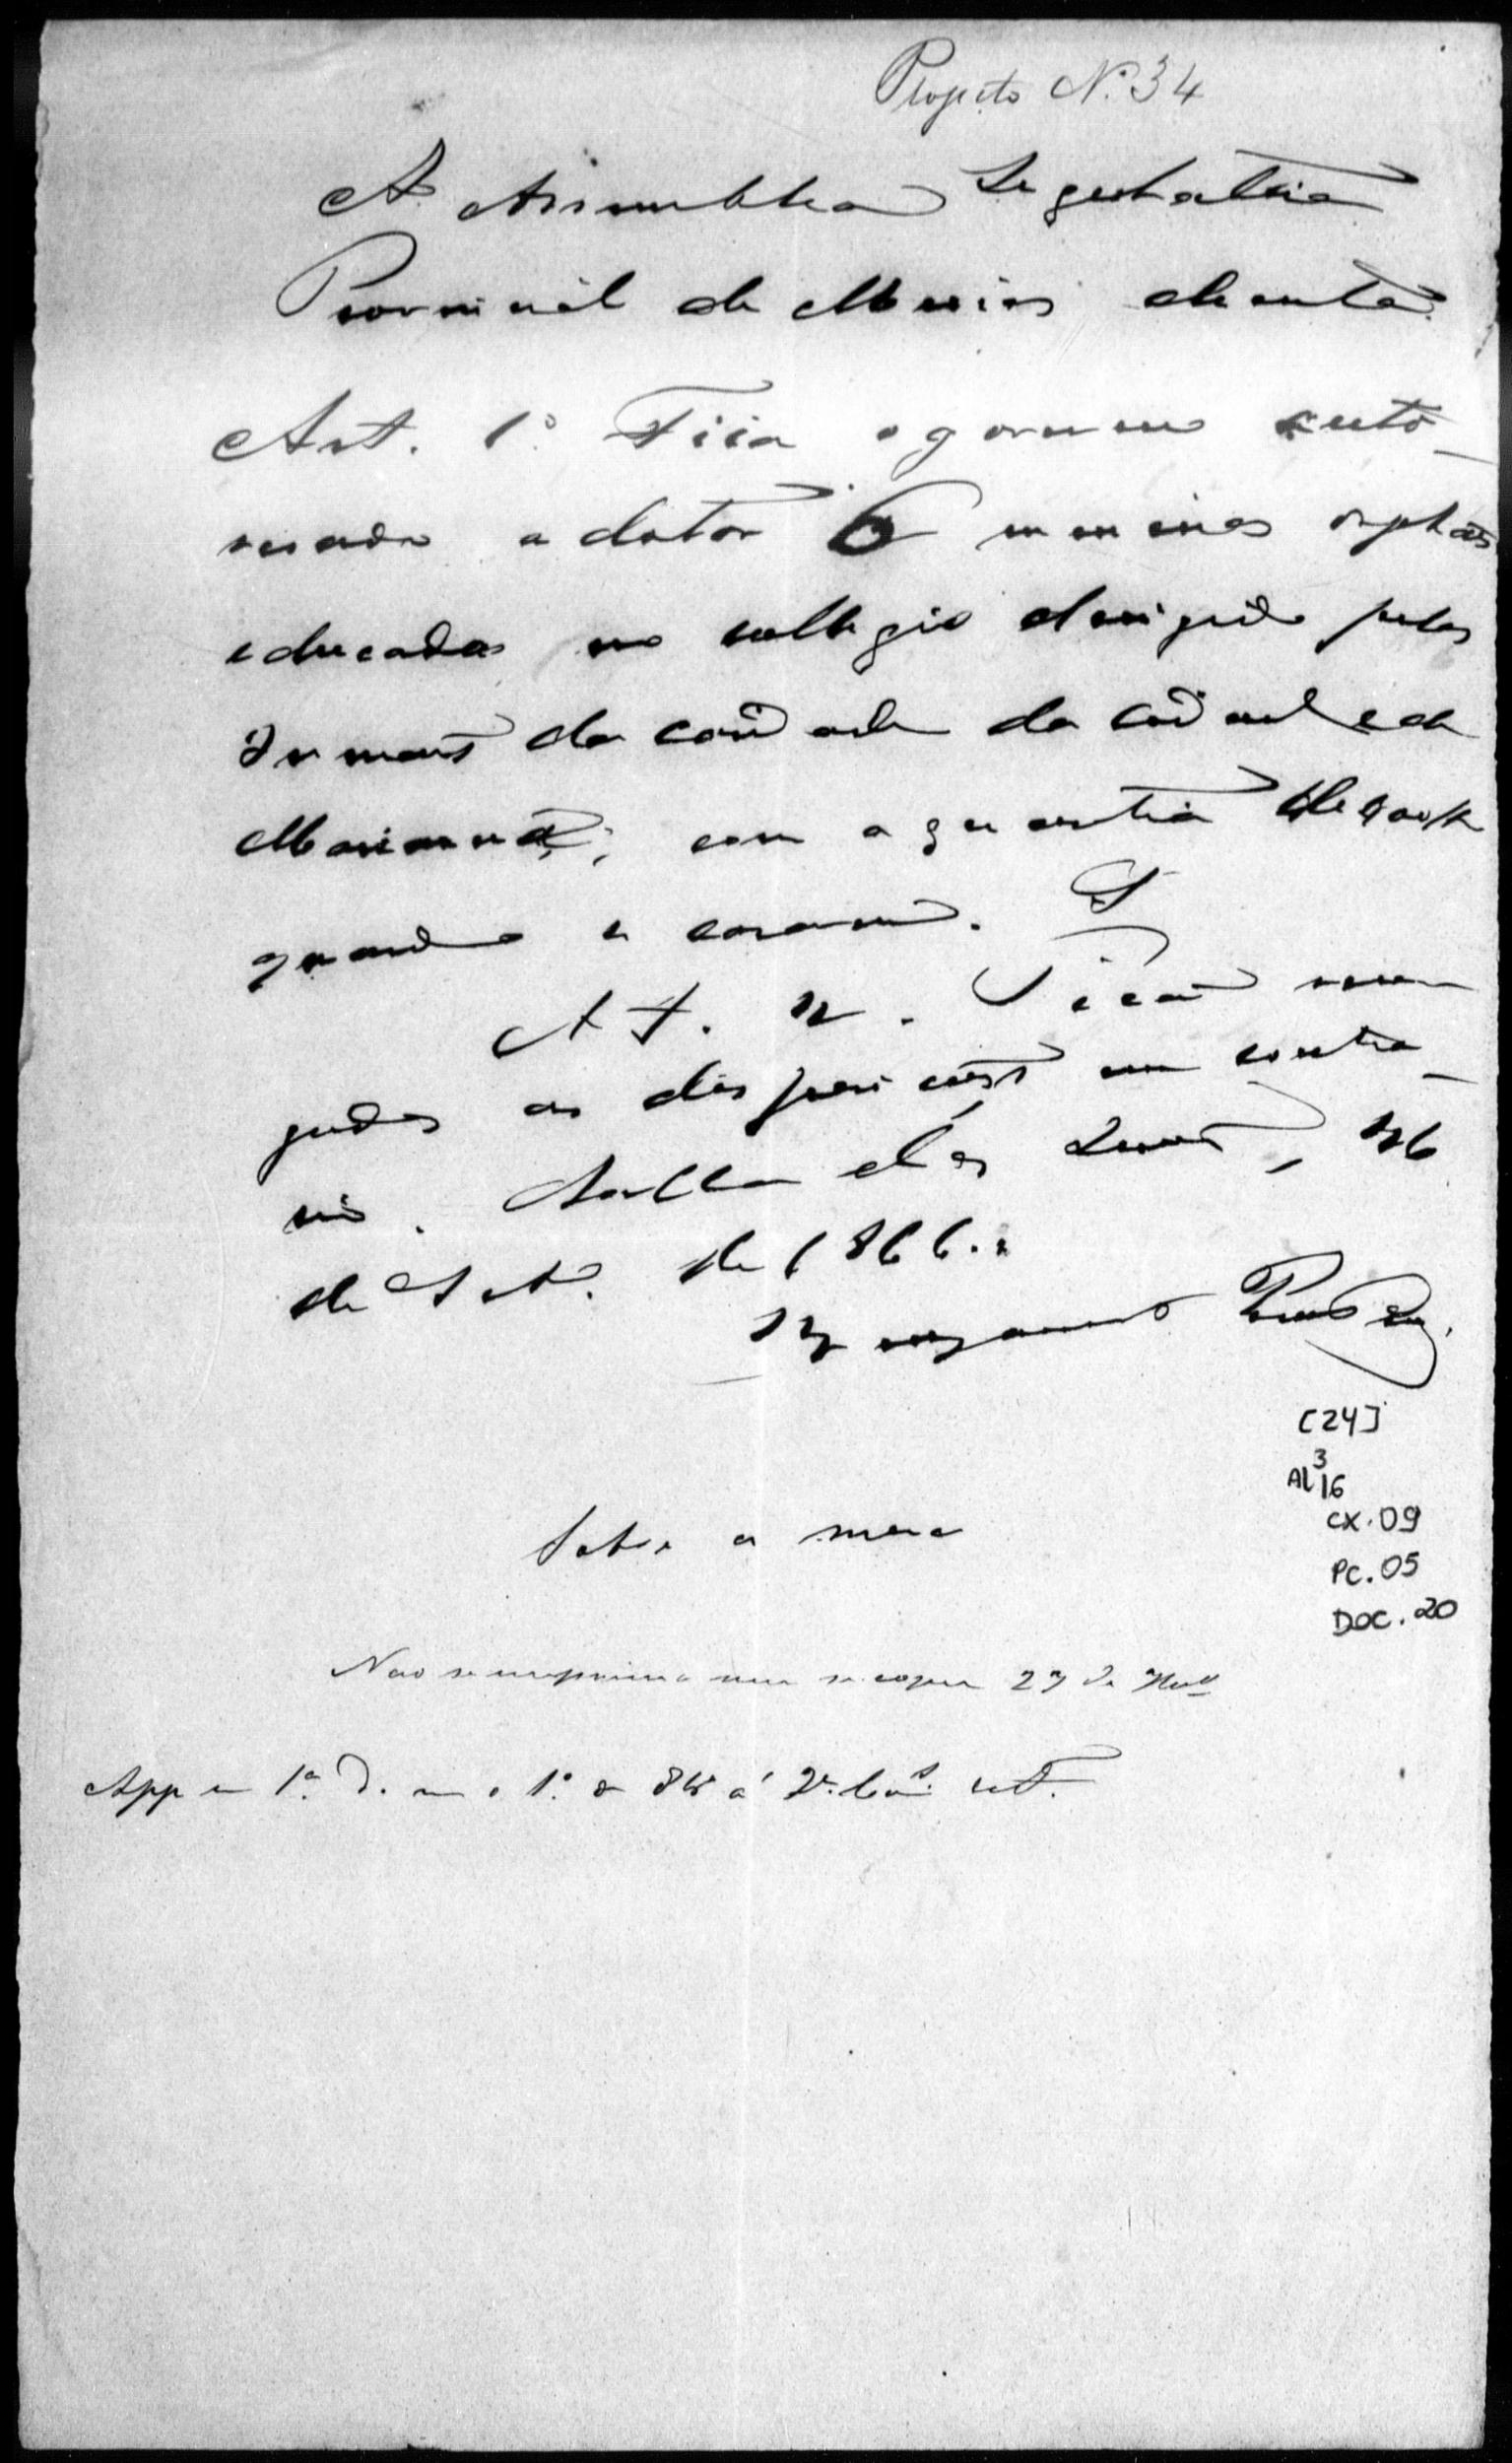 Projecto N.º 34
A Assemblea Legislativa
Provincial de Minas decreta:
Art. 1º Fica o governo auto-
risado a dotar 6 meninas orphãs
educadas no collegio dirigido pelas
Irmans da caridade da cidade de
Marianna, com a quantia de
quando se casarem.
Art. 2. Ficão revo-
gadas as disposições em contra-
rio. Salla das Sessões, 26
de Set. de 1866.
[24]
AL 3 16
CX.09
PC.05
DOC.20
Sobre a mesa
Não se imprima nem se copia 27 de
App em 1ª D. 1º de 8brº á 2ª